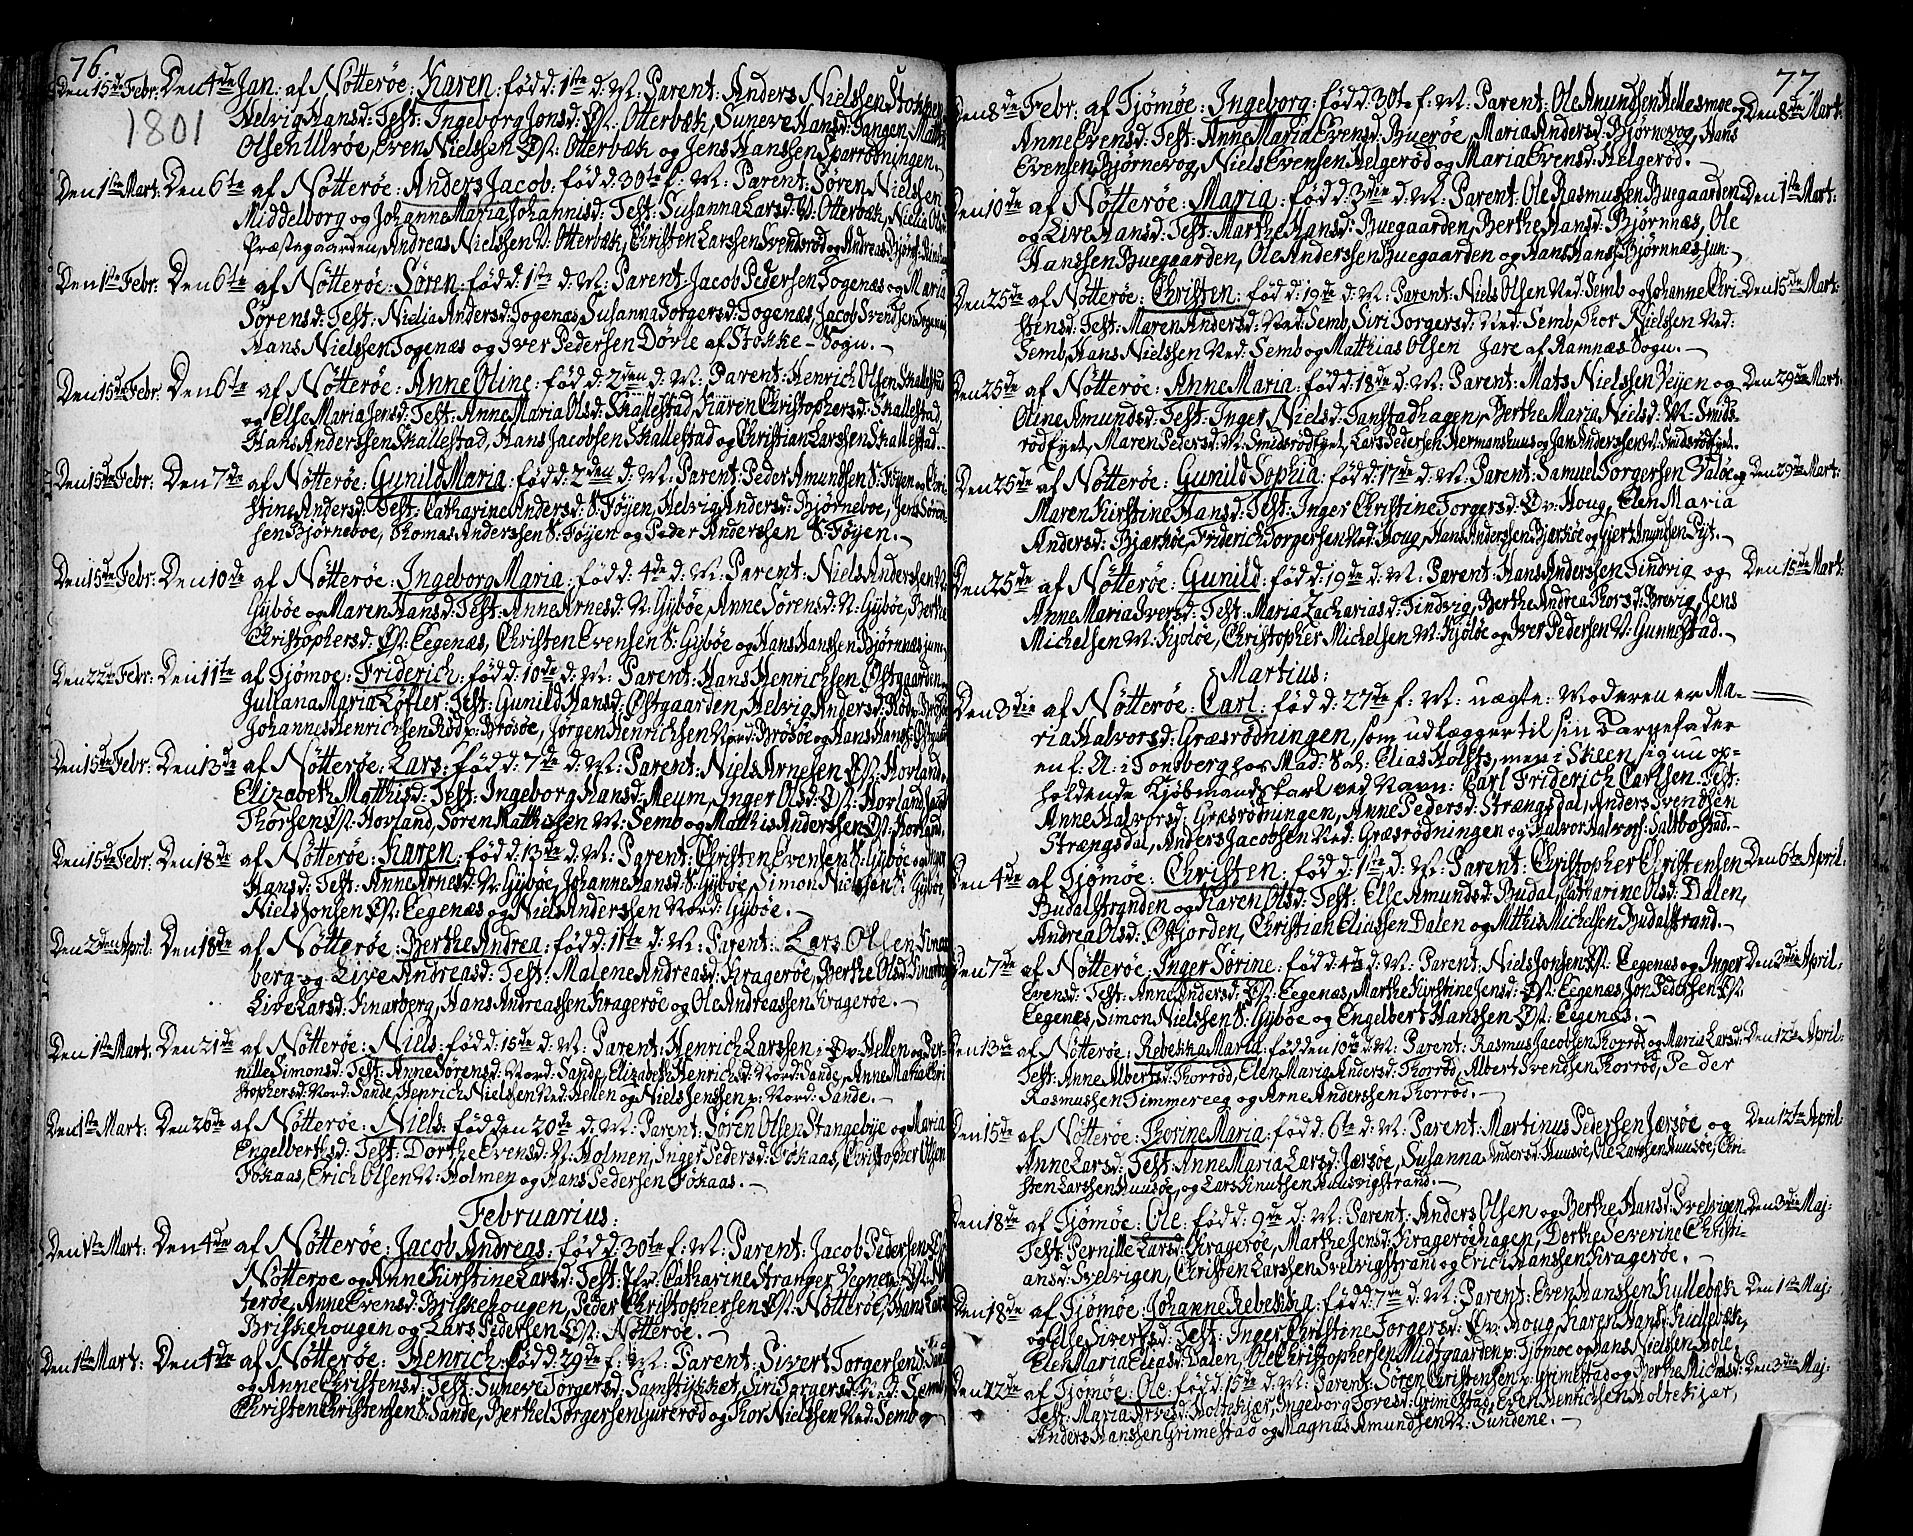 76.
Den 15de Febr: Den 4de Jan: af Nötteröe: Karen: född: 1ste d: M: Parent: Anders Nielssen Stokke
1801
Helvig Hansd: Test: Ingeborg Jonsd: Øst: Otterbæk, Suneve Hansd: Tangen, Mathi
Olsen Ulröe, Even Nielssen Øst: Otterbæk og Jens Hanssen Sparrodningen.
Den 1ste Mart: Den 6te af Nötteröe: Anders Jacob: född: 30te f: M: Parent: Sören Nielssen
Middelborg og Johanne Maria Johannisd: Test: Susanna Larsd: V: Otterbæk, Nielia Ols
Præstegaarden, Andreas Nielssen V: Otterbæk, Christen Larssen Svendsröd og Andreas Björnss:
Den 1ste Febr: Den 6te af Nötteröe: Sören: född: 1ste d: M: Parent: Jacob Pedersen Togenæs og Maria
Sörensd: Test: Nielia Andersd: Togenæs, Susanna Torgersd: Togenæs, Jacob Svendsen Togenæs,
Hans Nielssen Togenæs og Iver Pedersen Dövle af Stokke-Sogn.
Den 15de Febr: Den 6te af Nötteröe: Anne Oline: född: 2den d: M: Parent: Henrich Olsen Skallestad
og Else Maria Jensd: Test: Anne Maria Olsd: Skallestad, Karen Christophersd: Skallestad,
Hans Anderssen Skallestad, Hans Jacobsen Skallestad og Christian Larssen Skallestad.
Den 15de Febr: Den 7de af Nötteröe: Gunild Maria: född: 2den d: M: Parent: Peder Amundsen S: Föyen og Chri-
stine Andersd: Test: Catharine Andersd: S: Föyen, Helvig Andersd: Björneboe, Jens Sören-
sen Björneboe, Thomas Anderssen S: Föyen og Peder Anderssen S: Föyen.
Den 15de Febr: Den 10de af Nötteröe: Ingeborg Maria: född: 4de d: M: Parent: Niels Anderssen N:
Gyböe og Maren Hansd: Test: Anne Arnesd: N: Gyböe, Anne Sörensd: N: Gyböe, Berthe
Christophersd: Øst: Eegenæs, Christen Evensen S: Gyböe og Hans Hanssen Björnnæs jun:
Den 22de Febr: Den 11te af Tjömöe: Friderich: född: 10de d: M: Parent: Hans Henrichsen Østgaarden
Juliana Maria Löfler: Test: Gunild Hansd: Østgaarden, Helvig Andersd: Röd p: Brösöe
Johannes Henrichsen Röd p: Brösöe, Jörgen Henrichsen Nord: Brösöe og Hans Hanss: Østgaard
Den 15de Febr: Den 13de af Nötteröe: Lars: född: 7de d: M: Parent: Niels Arnesen Øst: Hovland
Elizabeth Matthisd: Test: Ingeborg Hansd: Meum, Inger Olsd: Øst: Hovland,
Thorsen Øst: Hovland, Sören Matthissen V: Semb og Matthis Anderssen Øst: Hovland,
Den 15de Febr: Den 18de af Nötteröe: Karen: född: 13de d: M: Parent: Christen Evensen S: Gyböe og Inger
Hansd: Test: Anne Arnesd: N: Gyböe, Johanne Hansd: S: Gyböe, Simon Nielssen S: Gyböe,
Niels Jonsen Øst: Eegenæs og Niels Anderssen Nord: Gyböe.
Den 2den April: Den 18de af Nötteröe: Berthe Andrea: född: 11te d: M: Parent: Lars Olsen Kinar
berg og Live Andreasd: Test: Malene Andreasd: Krageröe, Berthe Olsd: Kinarberg
Live Larsd: Kinarberg, Hans Andreassen Krageröe og Ole Andreassen Krageröe.
Den 1ste Mart: Den 21de af Nötteröe: Niels: född: 15de d: M: Parent: Henrich Larssen i Øv: Hellen og Per-
nille Simonsd: Test: Anne Sörensd: Nord: Sande, Elizabeth Henrichsd: Nord: Sande, Anne Maria Chri
stophersd: Nord: Sande, Henrich Nielssen Ned: Hellen og Niels Jenssen p: Nord: Sande.
Den 1ste Mart: Den 26de af Nötteröe: Niels: född den 20de d: M: Parent: Sören Olsen Stangebye og Maria
Engelbertsd: Test: Dorthe Evensd: V: Holmen, Inger Pedersd: Fökaas, Christopher Olsen
Fökaas, Erich Olsen V: Holmen og Hans Pedersen Fökaas.
Februarius:
Den 1ste Mart: Den 4de af Nötteröe: Jacob Andreas: född: 30te f: M: Parent: Jacob Pedersen Øst:
Nötteröe og Anne Kirstine Larsd: Test: Jfr: Catharine Stranger Vegner Øst: Nöt
teröe, Anne Evensd: Briskehougen, Peder Christophersen Øst: Nötteröe, Hans Lars
Briskehougen og Lars Pedersen Øst: Nötteröe.
Den 1ste Mart: Den 4de af Nötteröe: Henrich: född: 29de f: M: Parent: Sivert Torgersen S: Sand
og Anne Christensd: Test: Sunevi Torgersd: Samstikket, Siri Torgersd: Ned: Semb,
Christen Christensen S: Sande, Berthel Torgersen Gureröd og Thor Nielssen Ned: Semb
77.
Den 8de Febr: af Tjömöe: Ingeborg: född: 30te f: M: Parent: Ole Amundsen Hellesmoe og Den 8de Mart:
Anne Evensd: Test: Anne Maria Evensd: Bueröe, Maria Andersd: Björnevog, Hans
Evensen Björnevog, Niels Evensen Helgeröd og Maria Evensd: Helgeröd.
Den 10de af Nötteröe: Maria: född: 3die d: M: Parent: Ole Rasmussen Buegaarden Den 1ste Mart:
og Live Hansd: Test: Marthe Hansd: Buegaarden, Berthe Hansd: Björnnæs, Ole
Hanssen Buegaarden, Ole Anderssen Buegaarden og Hans Hanss: Björnnæs jun.
Den 25de af Nötteröe: Christen: född: 19de d: M: Parent: Niels Olsen Ned: Semb og Johanne Chri- Den 15de Mart:
stensd: Test: Maren Andersd: Ned: Semb, Siri Torgersd: Ned: Semb, Thor Nielssen Ned:
Semb, Hans Nielssen Ned: Semb og Matthias Olsen Jare af Ramnæs Sogn.
Den 25de af Nötteröe: Anne Maria: född: 18de d: M: Parent: Mats Nielssen Veyen og Den 29de Mart:
Oline Amundsd: Test: Inger Nielsd: Tanstadhagen, Berthe Maria Nielsd: V: Smids-
röd Eyet, Maren Pedersd: V: Smidsröd Eyet, Lars Pedersen Hermanshuus og Jan Anderssen V: Smidsröd Eyet.
Den 25de af Nötteröe: Gunild Sophia: född: 17de d: M: Parent: Samuel Torgersen Valöe og Den 29de Mart:
Maren Kirstine Hansd: Test: Inger Christine Torgersd: Øv: Houg, Elen Maria
Andersd: Bjærköe, Friderich Torgersen Ned: Houg, Hans Anderssen Bjærköe og Gjert Amundsen Pijt.
Den 25de af Nötteröe: Gunild: född: 19de d: M: Parent: Hans Anderssen Tindvig og Den 15de Mart:
Anne Maria Iversd: Test: Maria Zachariasd: Tindvig, Berthe Andrea Thorsd: Brevig, Jens
Michelsen V: Kjölöe, Christopher Michelsen V: Kjölöe og Iver Pedersen V: Gunnestad.
Martius:
Den 3die af Nötteröe: Carl: född: 27de f: M: uægte: Moderen er Ma-
ria Halvorsd: Græsrödningen, som udlægger til sin Barnefader
en f: A: i Tonsberg hos Mad: Sal: Elias Holsts, men i Skeen sig nu op-
holdende Kjöbmandskarl ved Navn: Carl Friderich Carlsen. Test:
Anne Halvorsd: Græsrödningen, Anne Pedersd: Strængsdal, Anders Svendsen
Strængsdal, Anders Jacobsen Ned: Græsrödningen og Halvor Halvors: Saltbostad.
Den 4de af Tjömöe: Christen: född: 1ste d: M: Parent: Christopher Christensen Den 6te April:
Budalstranden og Karen Olsd: Test: Else Amundsd: Budal, Catharine Olsd: Dalen,
Andrea Olsd: Østjorden, Christian Eliassen Dalen og Mtthis Michelsen Budalstrand.
Den 7de af Nötteröe: Inger Sörine: född: 4de d: M: Parent: Niels Jonsen Øst: Eegenæs og Inger Den 3die April:
Evensd: Test: Anne Andersd: Øst: Eegenæs, Marthe Kirstine Jensd: Øst: Eegenæs, Jon Pedersen Øst:
Eegenæs, Simon Nielssen S: Gyböe og Engelbert Hanssen Øst: Eegenæs.
Den 13de af Nötteröe: Rebekka Maria: född den 10de d: M: Parent: Rasmus Jacobsen Thorröd og Maria Larsd: Den 12te April:
Test: Anne Albertsd: Thorröd, Elen Maria Andersd: Thorröd, Albert Svendsen Thorröd, Peder
Rasmussen Timmereeg og Arne Anderssen Thorröd.
Den 15de af Nötteröe: Thorine Maria: född: 6te d: M: Parent: Martinus Pedersen Jærsöe og Den 12te April
Anne Larsd: Test: Anne Maria Larsd: Jærsöe, Susanna Andersd: Huusöe, Ole Larssen Huusöe, Chri-
sten Larssen Huusöe, og Lars Knutsen Huusvigstrand.
Den 18de af Tjömöe: Ole: född: 9de d: M: Parent: Anders Olsen og Berthe Hansd: Svelvigen Den 3die Maj:
Test: Pernille Larsd: Krageröe, Marthe Jensd: Krageröehagen, Dorthe Severine Christi-
ansd: Svelvigen, Christen Larssen Svelvigstrand og Erich Hanssen Krageröe.
Den 18de af Tjömöe: Johanne Rebekka: född: 7de d: M: Parent: Even Hanssen Kullebæk Den 1ste Maj:
og Else Sivertsd: Test: Inger Christine Torgersd: Øv: Houg, Karen Hansd: Kullebæk,
Elen Maria Eliasd: Dalen, Ole Christophersen Midtgaarden p: Tjömöe og Hans Nielssen Hole.
Den 22de af Tjömöe: Ole: född: 15de d: M: Parent: Sören Christensen p: Grimestad og Berthe Michelsd: Den 3die Maj:
Test: Maria Arvesd: Holtekjær, Ingeborg Toresd: Grimestad, Even Henrichsen Holtekjær,
Anders Hanssen Grimestad og Magnus Amundsen V: Sundene.